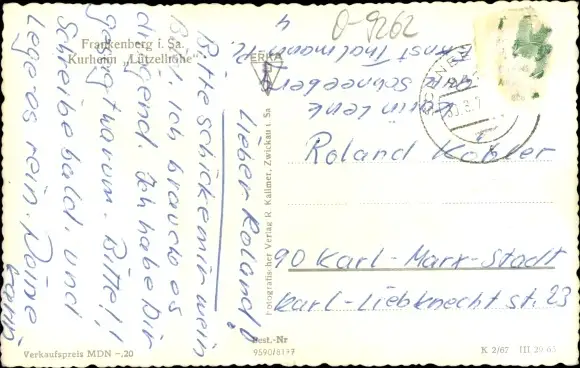 0-9262
Frankenberg i. Sa.
Kurheim „Lützelhöhe"
ERKA
Lieber Roland!
Bitte schicke mir mein
Bild ich brauche es
dringend. Ich habe Dir
gesagt warum. Bitte!!
Schreibe bald. und
lege es rein. Deine
Karin
Karin Lenk
Schneeberg
Ernst Thälmann Pl.
4
Roland Köhler
90 Karl-Marx-Stadt
Karl-Liebknecht st. 23
Fotografischer Verlag R. Kallmer, Zwickau i. Sa
Best.-Nr
Verkaufspreis MDN -,20
K 2/67 III 29 65